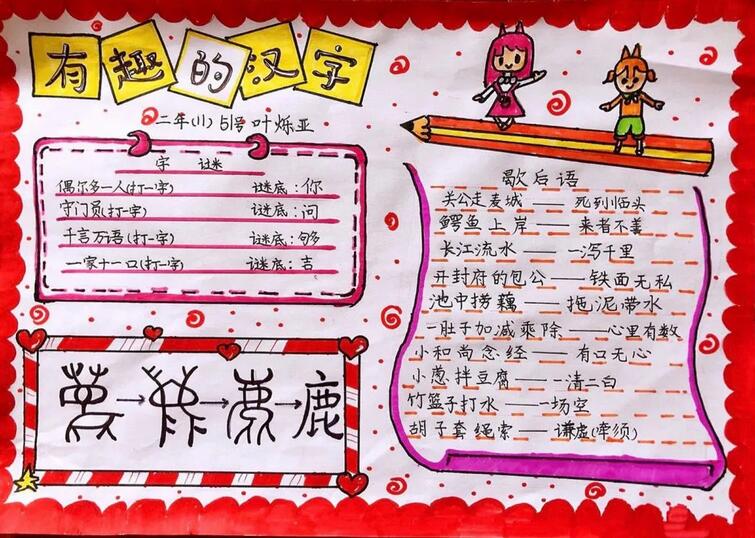 有趣的汉字
二年(11) 51号 叶烁亚
字 谜
偶尔多一人(打一字) 谜底:你
守门员(打一字) 谜底:问
千言万语(打一字) 谜底:够
一家十一口(打一字) 谜底:吉
→ → → 鹿
歇后语
关公走麦城——死到临头
鳄鱼上岸——来者不善
长江流水——一泻千里
开封府的包公——铁面无私
池中捞藕——拖泥带水
一肚子加减乘除——心里有数
小和尚念经——有口无心
小葱拌豆腐——一清二白
竹篮子打水——一场空
胡子套绳索——谦虚(牵须)